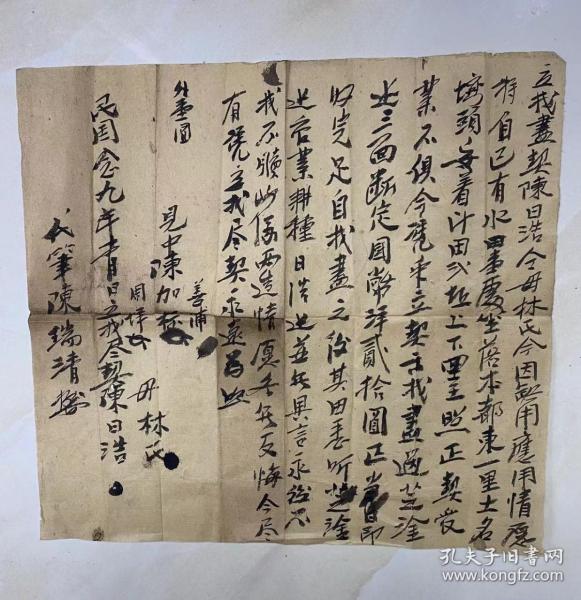 立找盡契陳日浩仝母林氏今因缺用應用情愿
将自己有水田壹慶坐落本都東一里土名
塆頭安着计田弍坵上下四至照正契受
業不俱今凭來立契言找盡過芝淦
三面断定国幣洋贰拾圓正当日即
収完足自找盡之後其田悉听芝淦
管業耕種日浩並無異言永遠不
找不贖此係两造情愿各無反悔今尽
有凭立找尽契永遠为照
外壹圓
善甫
見中陳加標
母林氏
民国念九年十月日立找尽契陳日浩
代筆陳瑞清
孔夫子旧书网
www.kongfz.com